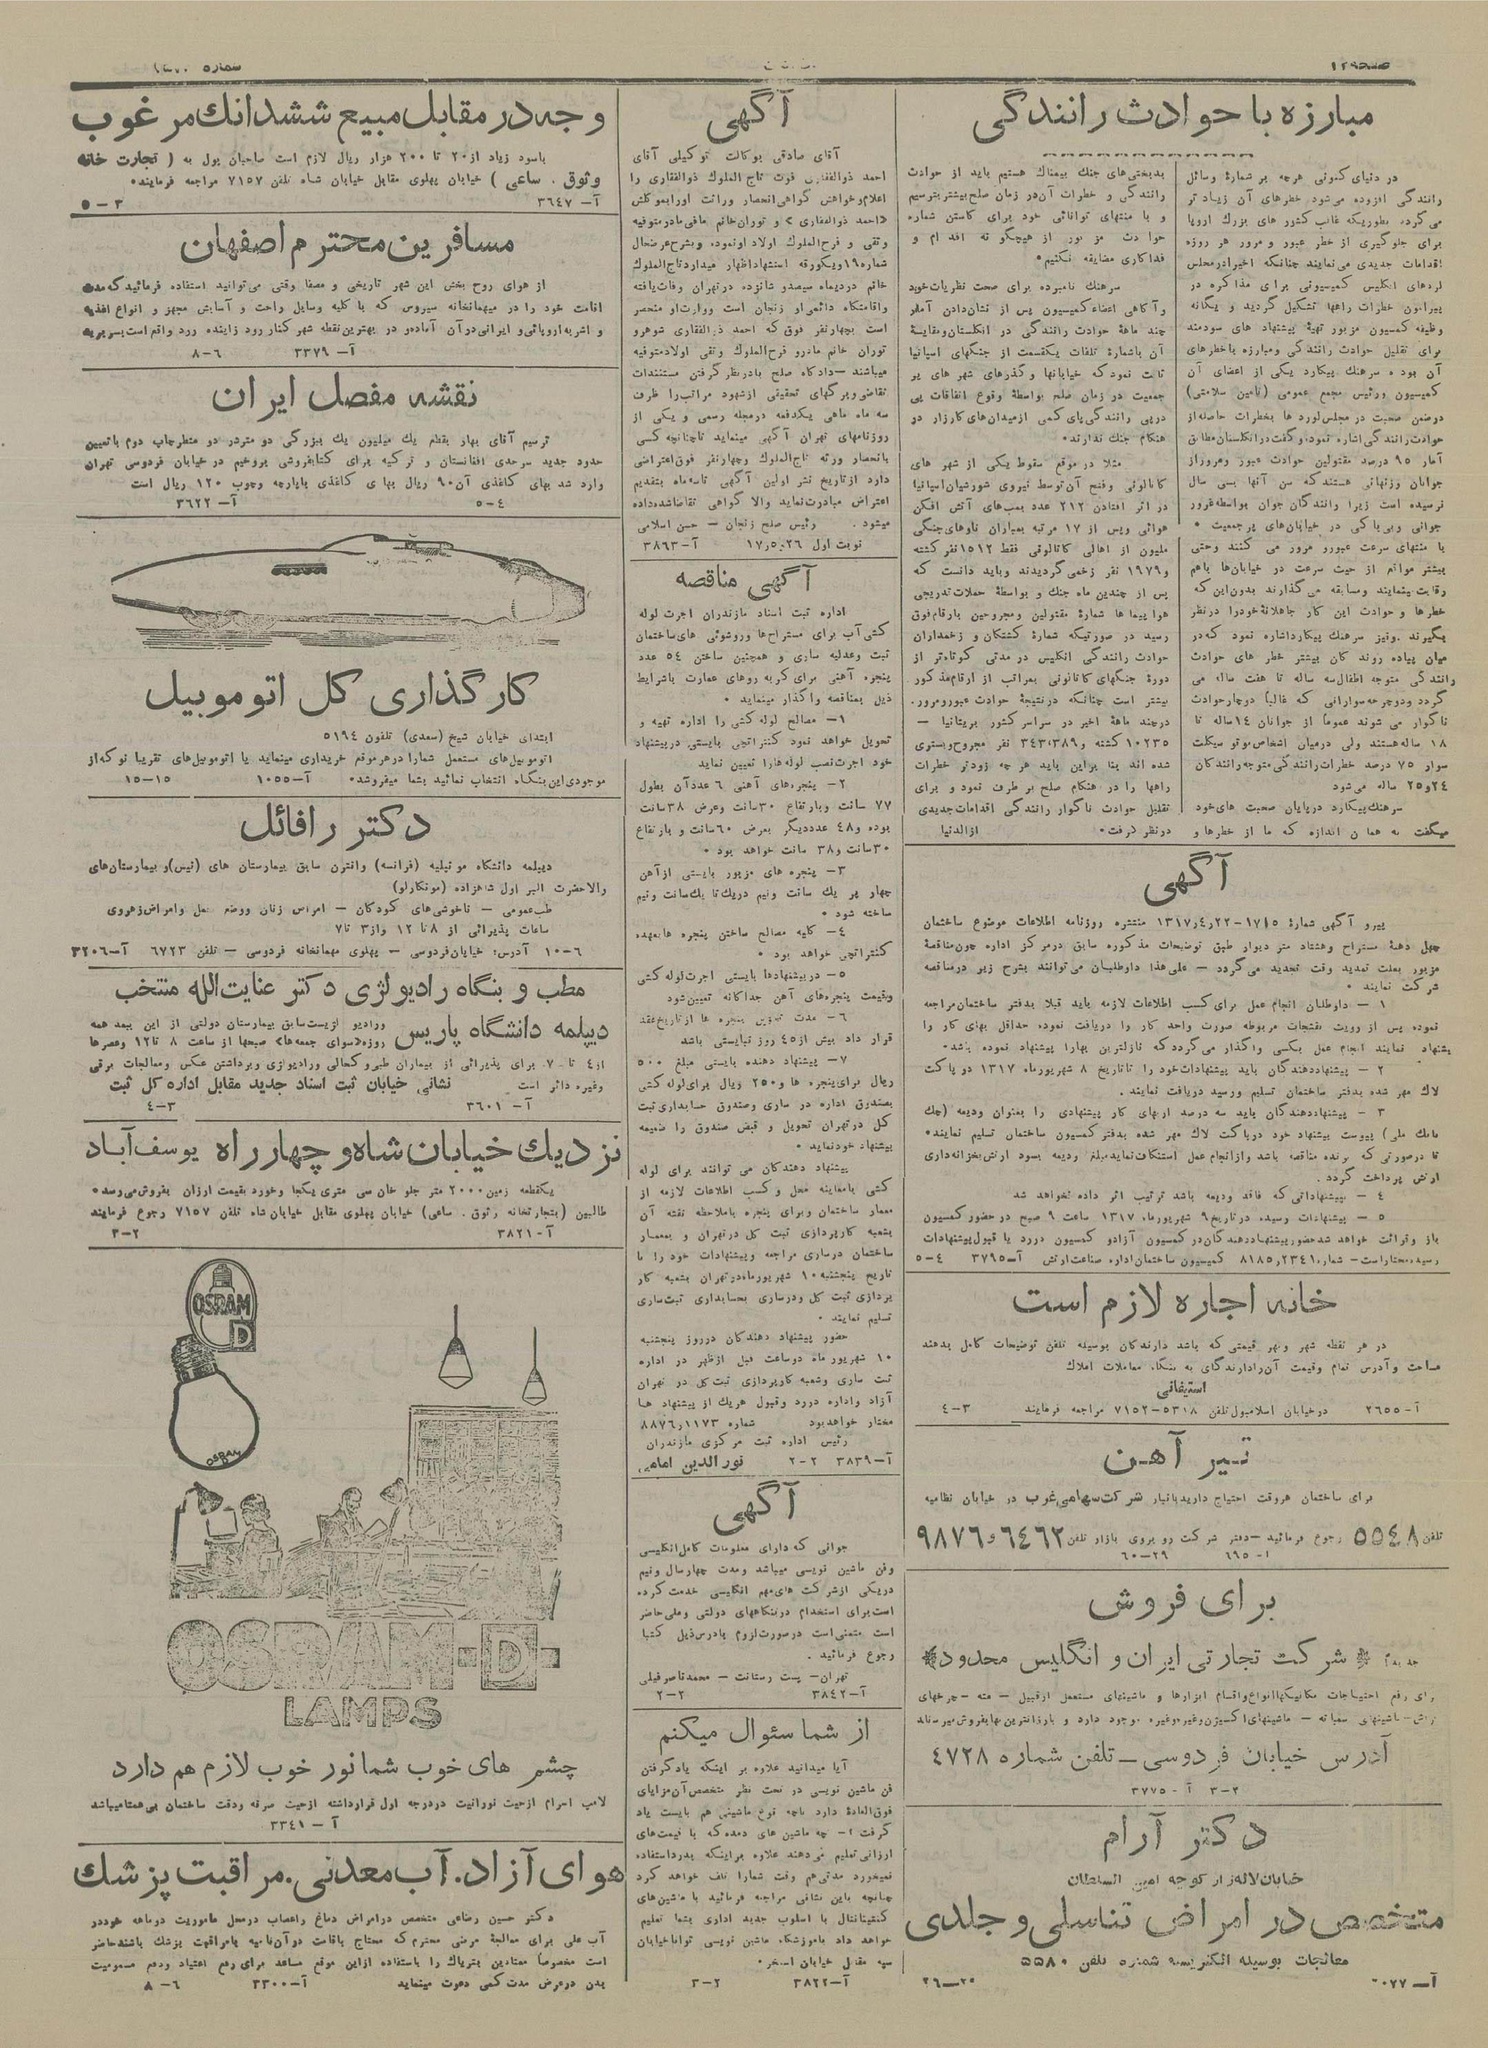 مبارزه با حوادث رانندگی
در دنیای کنونی هرچه بر شمارهٔ وسائل
رانندگی افزوده می‌شود خطرهای آن زیادتر
می‌گردد بطوریکه غالب کشور های بزرك اروپا
برای جلوگیری از خطر عبور و مرور هر روزه
اقدامات جدیدی می‌نمایند چنانکه اخیراً در مجلس
لردهای انگلیس کمیسیونی برای مذاکره در
پیرامون خطرات راهها تشکیل گردید و یگانه
وظیفه کمسیون مزبور تهیهٔ پیشنهاد های سودمند
برای تقلیل حوادث رانندگی ومبارزه باخطرهای
آن بوده سرهنك پیکارد یکی از اعضای آن
کمیسیون ورئیس مجمع عمومی (تامین سلامتی)
درضمن صحبت در مجلس لوردها بخطرات حاصله از
حوادث رانندگی اشاره نمود، و گفت در انگلستان مطابق
آمار ۹۵ درصد مقتولین حوادث عبور ومرور از
جوانان وزنهائی هستند که سن آنها بسی سال
نرسیده است زیرا رانندگان جوان بواسطه غرور
جوانی وبی‌باکی در خیابان‌های پرجمعیت
با منتهای سرعت عبور و مرور می کنند وحتی
بیشتر مواقع از حیث سرعت در خیابان‌ها باهم
رقابت ینمایند ومسابقه می گذارند بدون این که
خطرها و حوادث این کار جاهلانهٔ خودرا درنظر
بگیرند . ونیز سرهنك پیکارد اشاره نمود که در
میان پیاده روندگان بیشتر خطر های حوادث
رانندگی متوجه اطفال سه ساله تا هفت ساله می
گردد ودوچرخه سوارانی که غالباً دوچار حوادث
ناگوار می شوند عموماً از جوانان ۱۴ ساله تا
۱۸ ساله هستند ولی درمیان اشخاص موتوسیکلت
سوار ۷۵ درصد خطرات رانندگی متوجه رانندگان
۲۴ و ۲۵ ساله می‌شود
سرهنك پیکارد در پایان صحبت های خود
میگفت به همان اندازه که ما از خطرها و
بدبختی‌های جنك بیمناك هستیم باید از حوادث
رانندگی و خطرات آن در زمان صلح بیشتر بترسیم
و با منتهای توانائی خود برای کاستن شماره
حوادث مزبور از هیچگونه اقدام و
فداکاری مضایقه نکنیم•
سرهنك نامبرده برای صحت نظریات خود
وآگاهی اعضاء کمیسیون پس از نشان‌دادن آمار
چند ماههٔ حوادث رانندگی در انگلستان ومقایسهٔ
آن باشمارهٔ تلفات یکقسمت از جنگهای اسپانیا
ثابت نمود که خیابانها وگذرهای شهر های پر
جمعیت در زمان صلح بواسطهٔ وقوع اتفاقات پی
درپی رانندگی پای کمی از میدان‌های کارزار در
هنگام جنك ندارند•
مثلا در موقع سقوط یکی از شهر های
کاتالونی وفتح آن توسط نیروی شورشیان اسپانیا
در اثر افتادن ۲۱۲ عدد بمب‌های آتش افکن
هوائی وپس از ۱۷ مرتبه بمباران ناوهای جنگی
ملیون از اهالی کاتالونی فقط ۱۵۱۲ نفر کشته
و ۱۹۷۹ نفر زخمی گردیدند وباید دانست که
پس از چندین ماه جنك و بواسطهٔ حملات تدریجی
هواپیماها شمارهٔ مقتولین ومجروحین بارقام فوق
رسید در صورتیکه شمارهٔ کشتگان و زخمداران
حوادث رانندگی انگلیس در مدتی کوتاه‌تر از
دورهٔ جنگهای کاتالونی بمراتب از ارقام مذکور
بیشتر است چنانکه در نتیجهٔ حوادث عبور و مرور.
در چند ماههٔ اخیر در سراسر کشور بریتانیا —
۱۰۲۳۵ کشته و ۳۴۳،۳۸۹ نفر مجروح وبستری
شده اند بنا براین باید هرچه زودتر خطرات
راهها را در هنگام صلح برطرف نمود و برای
تقلیل حوادث ناگوار رانندگی اقدامات جدیدی
درنظر گرفت• ازالدنیا
آگهی
پیرو آگهی شمارهٔ ۱۷۱۵-۱۳۱۷،۴،۲۲ منتشره روزنامه اطلاعات موضوع ساختمان
چهل دهنهٔ مستراح وهشتاد متر دیوار طبق توضیحات مذکوره سابق در مرکز اداره چون مناقصهٔ
مزبور بعلت تمدید وقت تجدید می‌گردد — علی‌هذا داوطلبان می‌توانند بشرح زیر در مناقصه
شرکت نمایند •
۱ — داوطلبان انجام عمل برای کسب اطلاعات لازمه باید قبلا بدفتر ساختمان مراجعه
نموده پس از رویت نقشجات مربوطه صورت واحد کار را دریافت نموده حداقل بهای کار را
پیشنهاد نمایند انجام عمل بکسی واگذار می‌گردد که نازلترین بها را پیشنهاد نموده باشد•
۲ — پیشنهاد دهندگان باید پیشنهادات خود را تا تاریخ ۸ شهریور ماه ۱۳۱۷ در پاکت
لاك مهر شده بدفتر ساختمان تسلیم ورسید دریافت نمایند .
۳ — پیشنهاد دهندگان باید سه درصد از بهای کار پیشنهادی را بعنوان ودیعه (چك
بانك ملی) پیوست پیشنهاد خود در پاکت لاك مهر شده بدفتر کمسیون ساختمان تسلیم نمایند•
تا درصورتی که برنده مناقصه باشد و از انجام عمل استنکاف نماید مبلغ ودیعه بسود ارتش بخزانه‌داری
ارتش پرداخت گردد .
۴ — پیشنهاداتی که فاقد ودیعه باشد ترتیب اثر داده نخواهد شد
۵ — پیشنهادات رسیده در تاریخ ۹ شهریور ماه ۱۳۱۷ ساعت ۹ صبح در حضور کمسیون
باز وقرائت خواهد شد حضور پیشنهاد دهندگان در کمسیون آزاد و کمسیون در رد یا قبول پیشنهادات
رسیده مختار است — شماره ۸۱۸۵،۲۳۴۱ کمیسیون ساختمان اداره صناعت ارتش آ—۳۷۹۵ ۴—۵
خانه اجاره لازم است
در هر نقطه شهر وبهر قیمتی که باشد دارندگان بوسیله تلفن توضیحات کامل بدهند
مساحت وآدرس تمام وقیمت آن را دارندگان به بنگاه معاملات املاك
استیفائی
آ—۲۶۵۵ در خیابان اسلامبول تلفن ۵۳۰۸—۷۱۵۲ مراجعه فرمایند ۳—۴
تیر آهن
برای ساختمان هروقت احتیاج دارید بانبار شرکت سهامی غرب در خیابان نظامیه
تلفن ۵۵۴۸ رجوع فرمائید—دفتر شرکت روبروی بازار تلفن ۶۴۶۲ و ۹۸۷۶
آ—۶۹۵ ۲۹—۶۰
برای فروش
شرکت تجارتی ایران و انگلیس محدود
برای رفع احتیاجات مکانیکها انواع واقسام ابزارها و ماشینهای مستعمل ازقبیل — مته — چرخهای
تراش—ماشینهای سمباته — ماشینهای اکسیژن وغیره وغیره موجود دارد و بارزانترین بها بفروش میرساند
آدرس خیابان فردوسی — تلفن شماره ۴۷۲۸
۲—۳ آ—۳۷۷۵
دکتر آرام
خیابان لاله‌زار کوچه امین السلطان
متخصص در امراض تناسلی و جلدی
معالجات بوسیله الکتریسته شماره تلفن ۵۵۸۰
آگهی
آقای صادقی بوکالت توکیلی آقای
احمد ذوالفقاری فوت تاج الملوك ذوالفقاری را
اعلام و خواهش گواهی انحصار وراثت او را بموکلش
«احمد ذوالفقاری» و توران خانم مافی مادر متوفیه
وتقی و فرح الملوك اولاد او نموده وبشرح عرضحال
شماره ۱۹ و یکورقه استشهاد اظهار میدارد تاج الملوك
خانم در دیماه سیصد و شانزده در تهران وفات یافته
واقامتگاه دائمی او زنجان است ووراث او منحصر
است بچهار نفر فوق که احمد ذوالفقاری شوهر و
توران خانم مادر و فرح الملوك وتقی اولاد متوفیه
میباشند —دادگاه صلح با درنظر گرفتن مستندات
تقاضی وبرگهای تحقیقی از شهود مراتب را ظرف
سه ماه ماهی یکدفعه در مجله رسمی و یکی از
روزنامه‌های تهران آگهی مینماید تا چنانچه کسی
بانحصار ورثه تاج الملوك و چهار نفر فوق اعتراضی
دارد از تاریخ نشر اولین آگهی تا سه ماه بتقدیم
اعتراض مبادرت نماید والا گواهی تقاضا شده داده
میشود . رئیس صلح زنجان — حسن اسلامی
نوبت اول ۱۷،۵،۲۶ آ—۳۸۶۳
آگهی مناقصه
اداره ثبت اسناد مازندران اجرت لوله
کشی آب برای مستراح‌ها وروشوئی های ساختمان
ثبت وعدلیه ساری و همچنین ساختن ۵۴ عدد
پنجره آهنی برای گربه روهای عمارت باشرایط
ذیل بمناقصه واگذار مینماید •
۱— مصالح لوله کشی را اداره تهیه و
تحویل خواهد نمود کنتراتچی بایستی در پیشنهاد
خود اجرت نصب لوله‌ها را تعیین نماید
۲— پنجره‌های آهنی ۶ عدد آن بطول
۷۷ سانت وبارتفاع ۳۰ سانت وعرض ۳۸ سانت
بوده و ۴۸ عدد دیگر بعرض ۶۰ سانت و بارتفاع
۳۰ سانت و ۳۸ سانت خواهد بود •
۳— پنجره های مزبور بایستی از آهن
چهار پر یك سانت ونیم در یك تا یك سانت ونیم
ساخته شود •
۴— کلیه مصالح ساختن پنجره ها بعهده
کنتراتچی خواهد بود •
۵— در پیشنهادها بایستی اجرت لوله کشی
وقیمت پنجره‌های آهن جداگانه تعیین شود
۶— مدت تحویل پنجره ها از تاریخ عقد
قرارداد بیش از ۴۵ روز نبایستی باشد
۷— پیشنهاد دهنده بایستی مبلغ ۵۰۰
ریال برای پنجره ها و ۲۵۰ ریال برای لوله کشی
بصندوق اداره در ساری وصندوق حسابداری ثبت
کل در تهران تحویل و قبض صندوق را ضمیمه
پیشنهاد خود نماید•
پیشنهاد دهندگان می توانند برای لوله
کشی بامعاینه محل و کسب اطلاعات لازمه از
معمار ساختمان وبرای پنجره باملاحظه نقشه آن
بشعبه کارپردازی ثبت کل در تهران و بمعمار
ساختمان در ساری مراجعه وپیشنهادات خود را تا
تاریخ پنجشنبه ۱۰ شهریور ماه در تهران بشعبه کار
پردازی ثبت کل ودر ساری بحسابداری ثبت ساری
تسلیم نمایند •
حضور پیشنهاد دهندگان در روز پنجشنبه
۱۰ شهریور ماه دو ساعت قبل از ظهر در اداره
ثبت ساری وشعبه کارپردازی ثبت کل در تهران
آزاد واداره در رد وقبول هریك از پیشنهاد ها
مختار خواهد بود شماره ۸۸۷۶،۱۱۷۳
رئیس اداره ثبت مرکزی مازندران
آ—۳۸۳۹ ۲—۲ نورالدین امامی
آگهی
جوانی که دارای معلومات کامل انگلیسی
وفن ماشین نویسی میباشد ومدت چهار سال ونیم
در یکی از شرکت های مهم انگلیسی خدمت کرده
است برای استخدام در بنگاههای دولتی وملی حاضر
است متمنی است در صورت لزوم بآدرس ذیل کتبا
رجوع فرمائید .
تهران— پست رستانت — محمد ناصر فیلی
آ—۳۸۴۲ ۲—۲
از شما سئوال میکنم
آیا میدانید علاوه بر اینکه یاد گرفتن
فن ماشین نویسی در تحت نظر متخصص آن مزایای
فوق‌العاده دارد باچه نوع ماشینی هم بایست یاد
ارزانی تعلیم می‌دهند علاوه براینکه بدرد استفاده
نمیخورد مدتی هم وقت شمارا تلف خواهد کرد
چنانچه باین نشانی مراجعه فرمائید با ماشین‌های
کنتیننتال با اسلوب جدید اداری بشما تعلیم
خواهد داد باموزشگاه ماشین نویسی توانا خیابان
سپه مقابل خیابان استخر•
آ—۳۸۲۲ ۲—۳
وجه در مقابل مبیع ششدانك مرغوب
باسود زیاد از ۲۰ تا ۲۰۰ هزار ریال لازم است صاحبان پول به ( تجارت خانه
وثوق . ساعی ) خیابان پهلوی مقابل خیابان شاه تلفن ۷۱۵۷ مراجعه فرمایند•
آ— ۳۶۴۷ ۳—۵
مسافرین محترم اصفهان
از هوای روح بخش این شهر تاریخی و مصفا وقتی می‌توانید استفاده فرمائید که مدت
اقامت خود را در میهمانخانه سیروس که با کلیه وسایل راحت و آسایش مجهز و انواع اغذیه
و اشربه اروپائی و ایرانی در آن آماده و در بهترین نقطه شهر کنار رود زاینده رود واقع است بسر برید
آ— ۳۳۷۹ ۶—۸
نقشه مفصل ایران
ترسیم آقای بهار بقطم یك میلیون یك ببزرگی دو متر در دو متر طبع چاپ دوم باتعیین
حدود جدید سرحدی افغانستان و ترکیه برای کتابفروشی بروخیم در خیابان فردوسی تهران
وارد شد بهای کاغذی آن ۹۰ ریال بهای کاغذی باپارچه وچوب ۱۲۰ ریال است
۴—۵ آ— ۳۶۲۲
کارگذاری کل اتوموبیل
ابتدای خیابان شیخ (سعدی) تلفون ۵۱۹۴
اتوموبیل‌های مستعمل شما را در هر موقع خریداری مینماید یا اتوموبیل‌های تقریبا نو که از
موجودی این بنگاه انتخاب نمائید بشما میفروشد• آ—۱۰۵۵ ۱۵—۱۵
دکتر رافائل
دیپلمه دانشگاه مونپلیه (فرانسه) وانترن سابق بیمارستان های (نیس) و بیمارستان‌های
والاحضرت البر اول شاهزاده (مونکارلو)
طب عمومی — ناخوشی‌های کودکان — امراض زنان ووضع حمل وامراض زهروی
ساعات پذیرائی از ۸ تا ۱۲ واز ۳ تا ۷
۶—۱۰ آدرس: خیابان فردوسی — پهلوی مهمانخانه فردوسی — تلفن ۶۷۲۳ آ—۳۲۰۶
مطب و بنگاه رادیولژی دکتر عنایت‌الله منتخب
دیپلمه دانشگاه پاریس ورادیولژیست سابق بیمارستان دولتی از این ببعد همه
روزه «سوای جمعه‌ها» صبحها از ساعت ۸ تا ۱۲ وعصرها
از ۴ تا ۷ برای پذیرائی از بیماران طبی و کحالی ورادیولژی وبرداشتن عکس ومعالجات برقی
وغیره دائر است نشانی خیابان ثبت اسناد جدید مقابل اداره کل ثبت
آ— ۳۶۰۱ ۳—۴
نزدیك خیابان شاه و چهارراه یوسف‌آباد
یکقطعه زمین ۲۰۰۰ متر جلو خان سی متری یکجا وخورد بقیمت ارزان بفروش می‌رسد•
طالبین (بتجارتخانه وثوق . ساعی) خیابان پهلوی مقابل خیابان شاه تلفن ۷۱۵۷ رجوع فرمایند
آ—۳۸۲۱ ۲—۳
OSRAM
D
OSRAM
OSRAM-D-
LAMPS
چشم های خوب شما نور خوب لازم هم دارد
لامپ اسرام ازحیث نورانیت در درجه اول قرار داشته ازحیث صرفه ودقت ساختمان بی‌همتا میباشد
آ— ۳۳۴۱
هوای آزاد. آب معدنی. مراقبت پزشك
دکتر حسین رضاعی متخصص در امراض دماغ و اعصاب در محل ماموریت دو ماهه خود در
آب علی برای معالجهٔ مرضی محترم که محتاج باقامت در آن ناحیه بامراقبت پزشك باشند حاضر
است مخصوصاً معتادین بتریاك را باستفاده از این موقع مساعد برای رفع اعتیاد ودفع مسمومیت
بدن در عرض مدت کمی دعوت مینماید آ—۳۳۰۰ ۶—۸